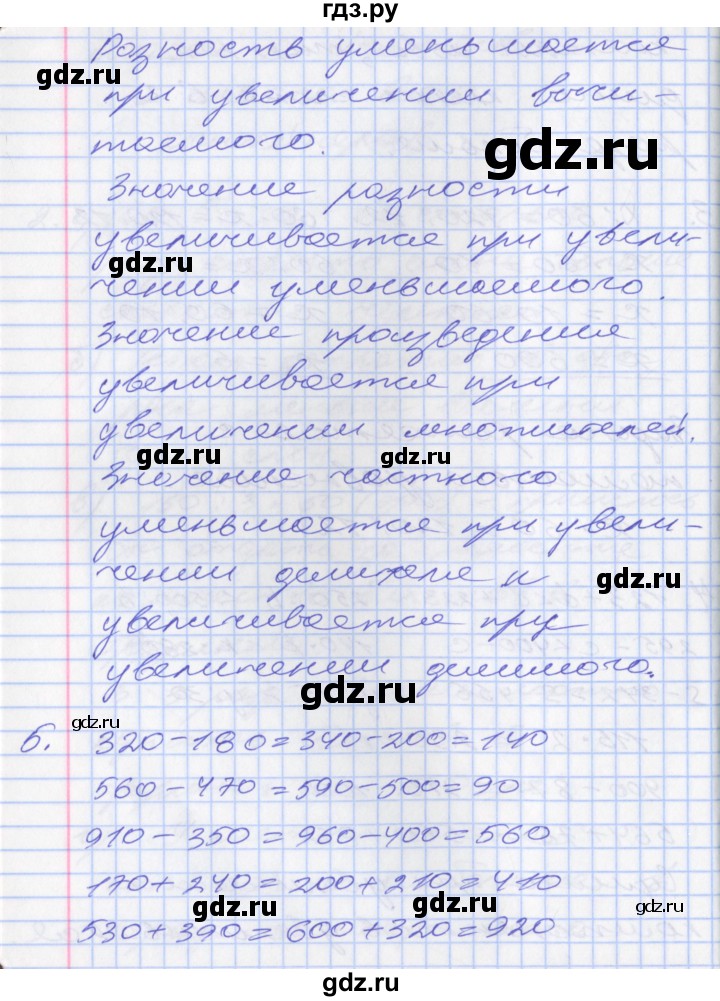 гдз.ру
Разность уменьшается
gdz.ru
при увеличении вычи-
gdz.ru
таемого.
Значение разности
увеличивается при увели-
gdz.ru
чении уменьшаемого.
Значение произведения
увеличивается при
увеличении множителей.
gdz.ru
gdz.ru
Значение частного
уменьшается при увели-
чении делителя и
gdz.ru
увеличивается при
увеличении делимого.
gdz.ru
gdz.ru
6. 320-180=340-200=140
560-470=590-500=90
910-350=960-400=560
170+240=200+210=410
gdz.ru
gdz.ru
530+390=600+320=920
gdz.ru